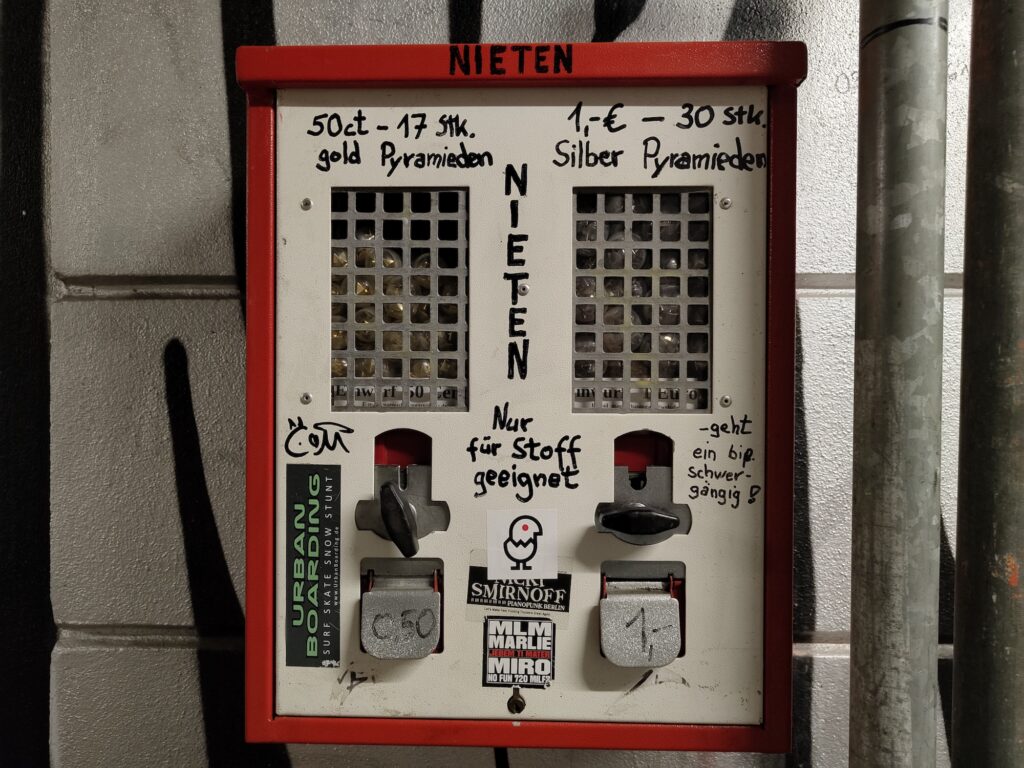 NIETEN
50ct - 17 Stk.
gold Pyramieden
1,-€ - 30 Stk.
Silber Pyramieden
NIETEN
Einwurf 50
1 Euro
Nur
für Stoff
geeignet
-geht
ein biß.
schwer-
gängig!
URBAN
BOARDING
SURF SKATE SNOW STUNT
www.urbanboarding.de
NICKI
SMIRNOFF
PIANOPUNK BERLIN
MLM
MARLIE
JEBEM TI MATER
MIRO
NO FUN 720 MILF?
0,50
1,-